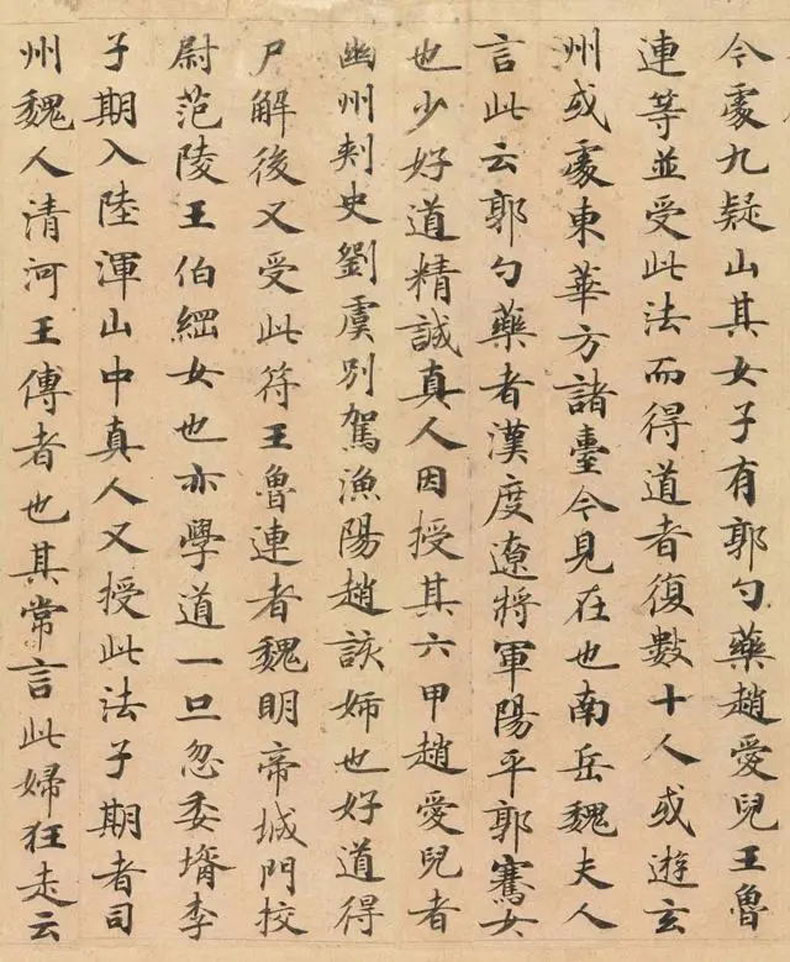 今處九疑山其女子有郭勺藥趙愛兒王魯
連等並受此法而得道者復數十人或遊玄
州或處東華方諸臺今見在也南岳魏夫人
言此云郭勺藥者漢度遼將軍陽平郭騫女
也少好道精誠真人因授其六甲趙愛兒者
幽州刾史劉虞別駕漁陽趙該姉也好道得
尸解後又受此符王魯連者魏明帝城門挍
尉范陵王伯綱女也亦學道一旦忽委壻李
子期入陸渾山中真人又授此法子期者司
州魏人清河王傅者也其常言此婦狂走云